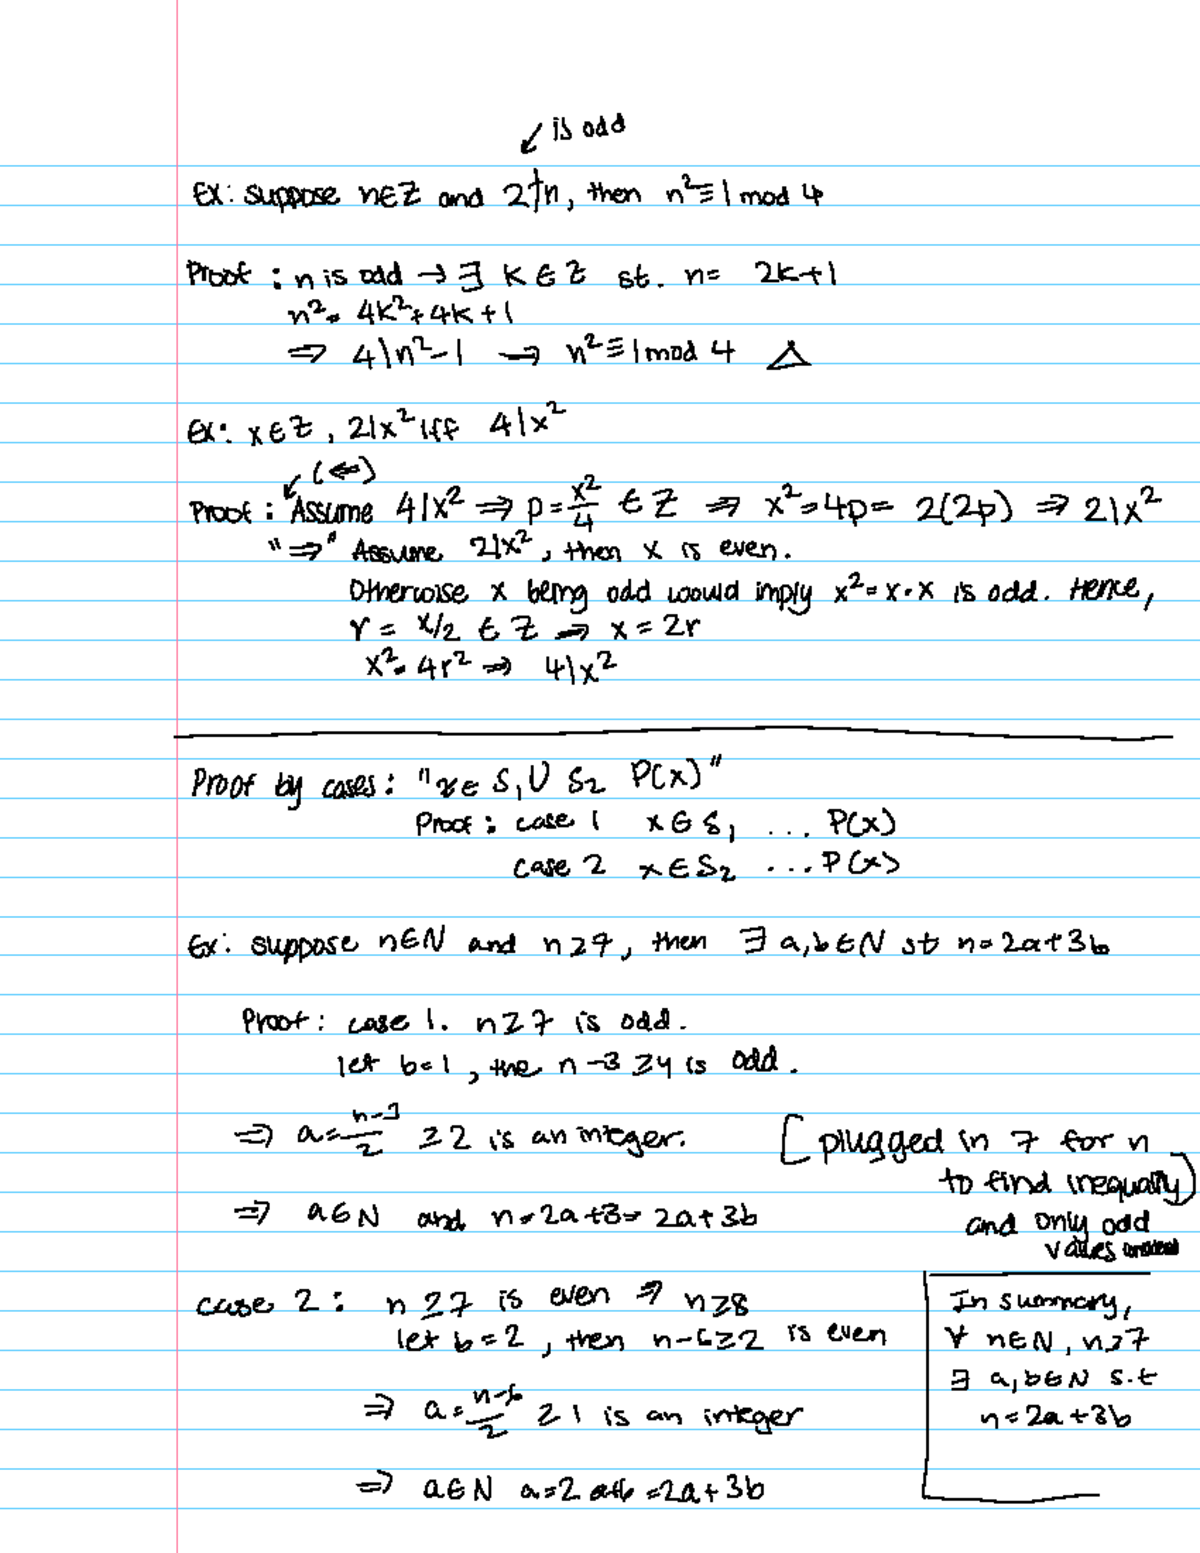 ↙ is odd
Ex: suppose n∈Z and 2∤n, then n²≡1 mod 4
Proof: n is odd → ∃ K∈Z st. n= 2k+1
n²= 4k²+4k+1
⇒ 4|n²-1 → n²≡1 mod 4 △
Ex: x∈Z, 2|x² iff 4|x²
↙ (⇐)
Proof: Assume 4|x² ⇒ p=x²/4 ∈ Z ⇒ x²=4p= 2(2p) ⇒ 2|x²
"⇒" Assume 2|x², then x is even.
Otherwise x being odd would imply x²=x·x is odd. Hence,
r = x/2 ∈ Z ⇒ x=2r
x²=4r² ⇒ 4|x²
Proof by cases: "x∈ S₁∪ S₂ P(x)"
Proof: case 1 x∈S₁ ... P(x)
case 2 x∈S₂ ...P(x)
Ex: suppose n∈N and n≥7, then ∃ a,b∈N st n=2a+3b
Proof: case 1. n≥7 is odd.
let b=1, the n-3≥4 is odd.
⇒ a=n-3/2 ≥2 is an integer.
[plugged in 7 for n
to find inequality)
and only odd
values
⇒ a∈N and n=2a+3= 2a+3b
case 2: n≥7 is even ⇒ n≥8
let b=2, then n-6≥2 is even
⇒ a=n-6/2 ≥1 is an integer
⇒ a∈N a=2a+6=2a+3b
In summary,
∀ n∈N, n≥7
∃ a,b∈N s.t
n=2a+3b